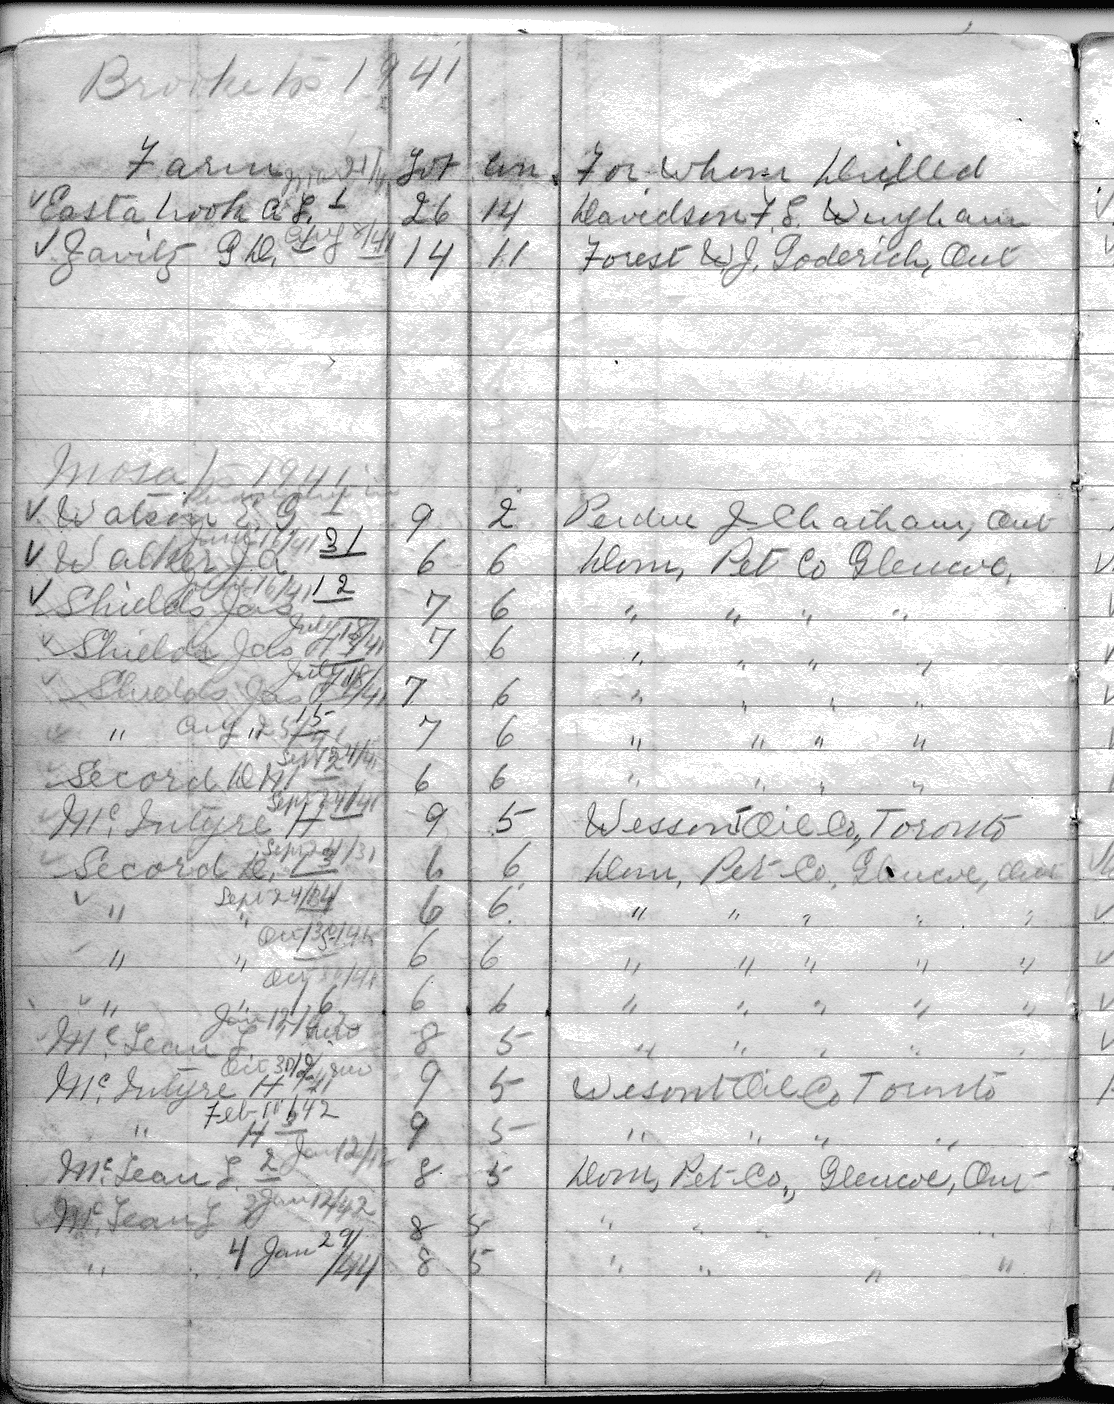 Brooke tp 1941
Farm Lot Con. For Whom Drilled
Eastabrook A L. 1 26 14 Davidson F. L. Wingham
Aug /41
Zavitz G D. 1 14 11 Forest W J. Goderich, Ont
Mosa tp 1941
Watson E G 1 9 2 Perdue J Chatham, Ont
June /41
Walker J A 31 6 6 Dom, Pet Co Glencoe,
16/41
Shields Jas 12 7 6 " " " "
July 18/41
Shields Jas 7 6 " " " "
July 18/41
Shields Jas 7 6 " " " "
" Aug 25 15 7 6 " " " "
Sept 24/41
Secord D H 6 6 " " " "
Sept 24/41
Mc Intyre H 9 5 Wesson Oil Co, Toronto
Sept 24/31
Secord D. 3 6 6 Dom, Pet Co, Glencoe, Ont
Sept 24/
" " 4 6 6 " " " " "
Oct 30/41
" " 5 6 6 " " " " "
Oct 30/41
" " 6 6 6 " " " " "
Jan 12/
Mc Lean L 8 5 " " " " "
Oct 30/
Mc Intyre H 2 9 5 Wesont Oil Co Toronto
Feb 11 /42
" H 3 9 5 " " " "
Mc Lean L. 2 Jan 12/42 8 5 Dom, Pet Co., Glencoe, Ont
Mc Lean L 3 Jan 12/42 8 5 " " " "
" 4 Jan 29/44 8 5 " " " "